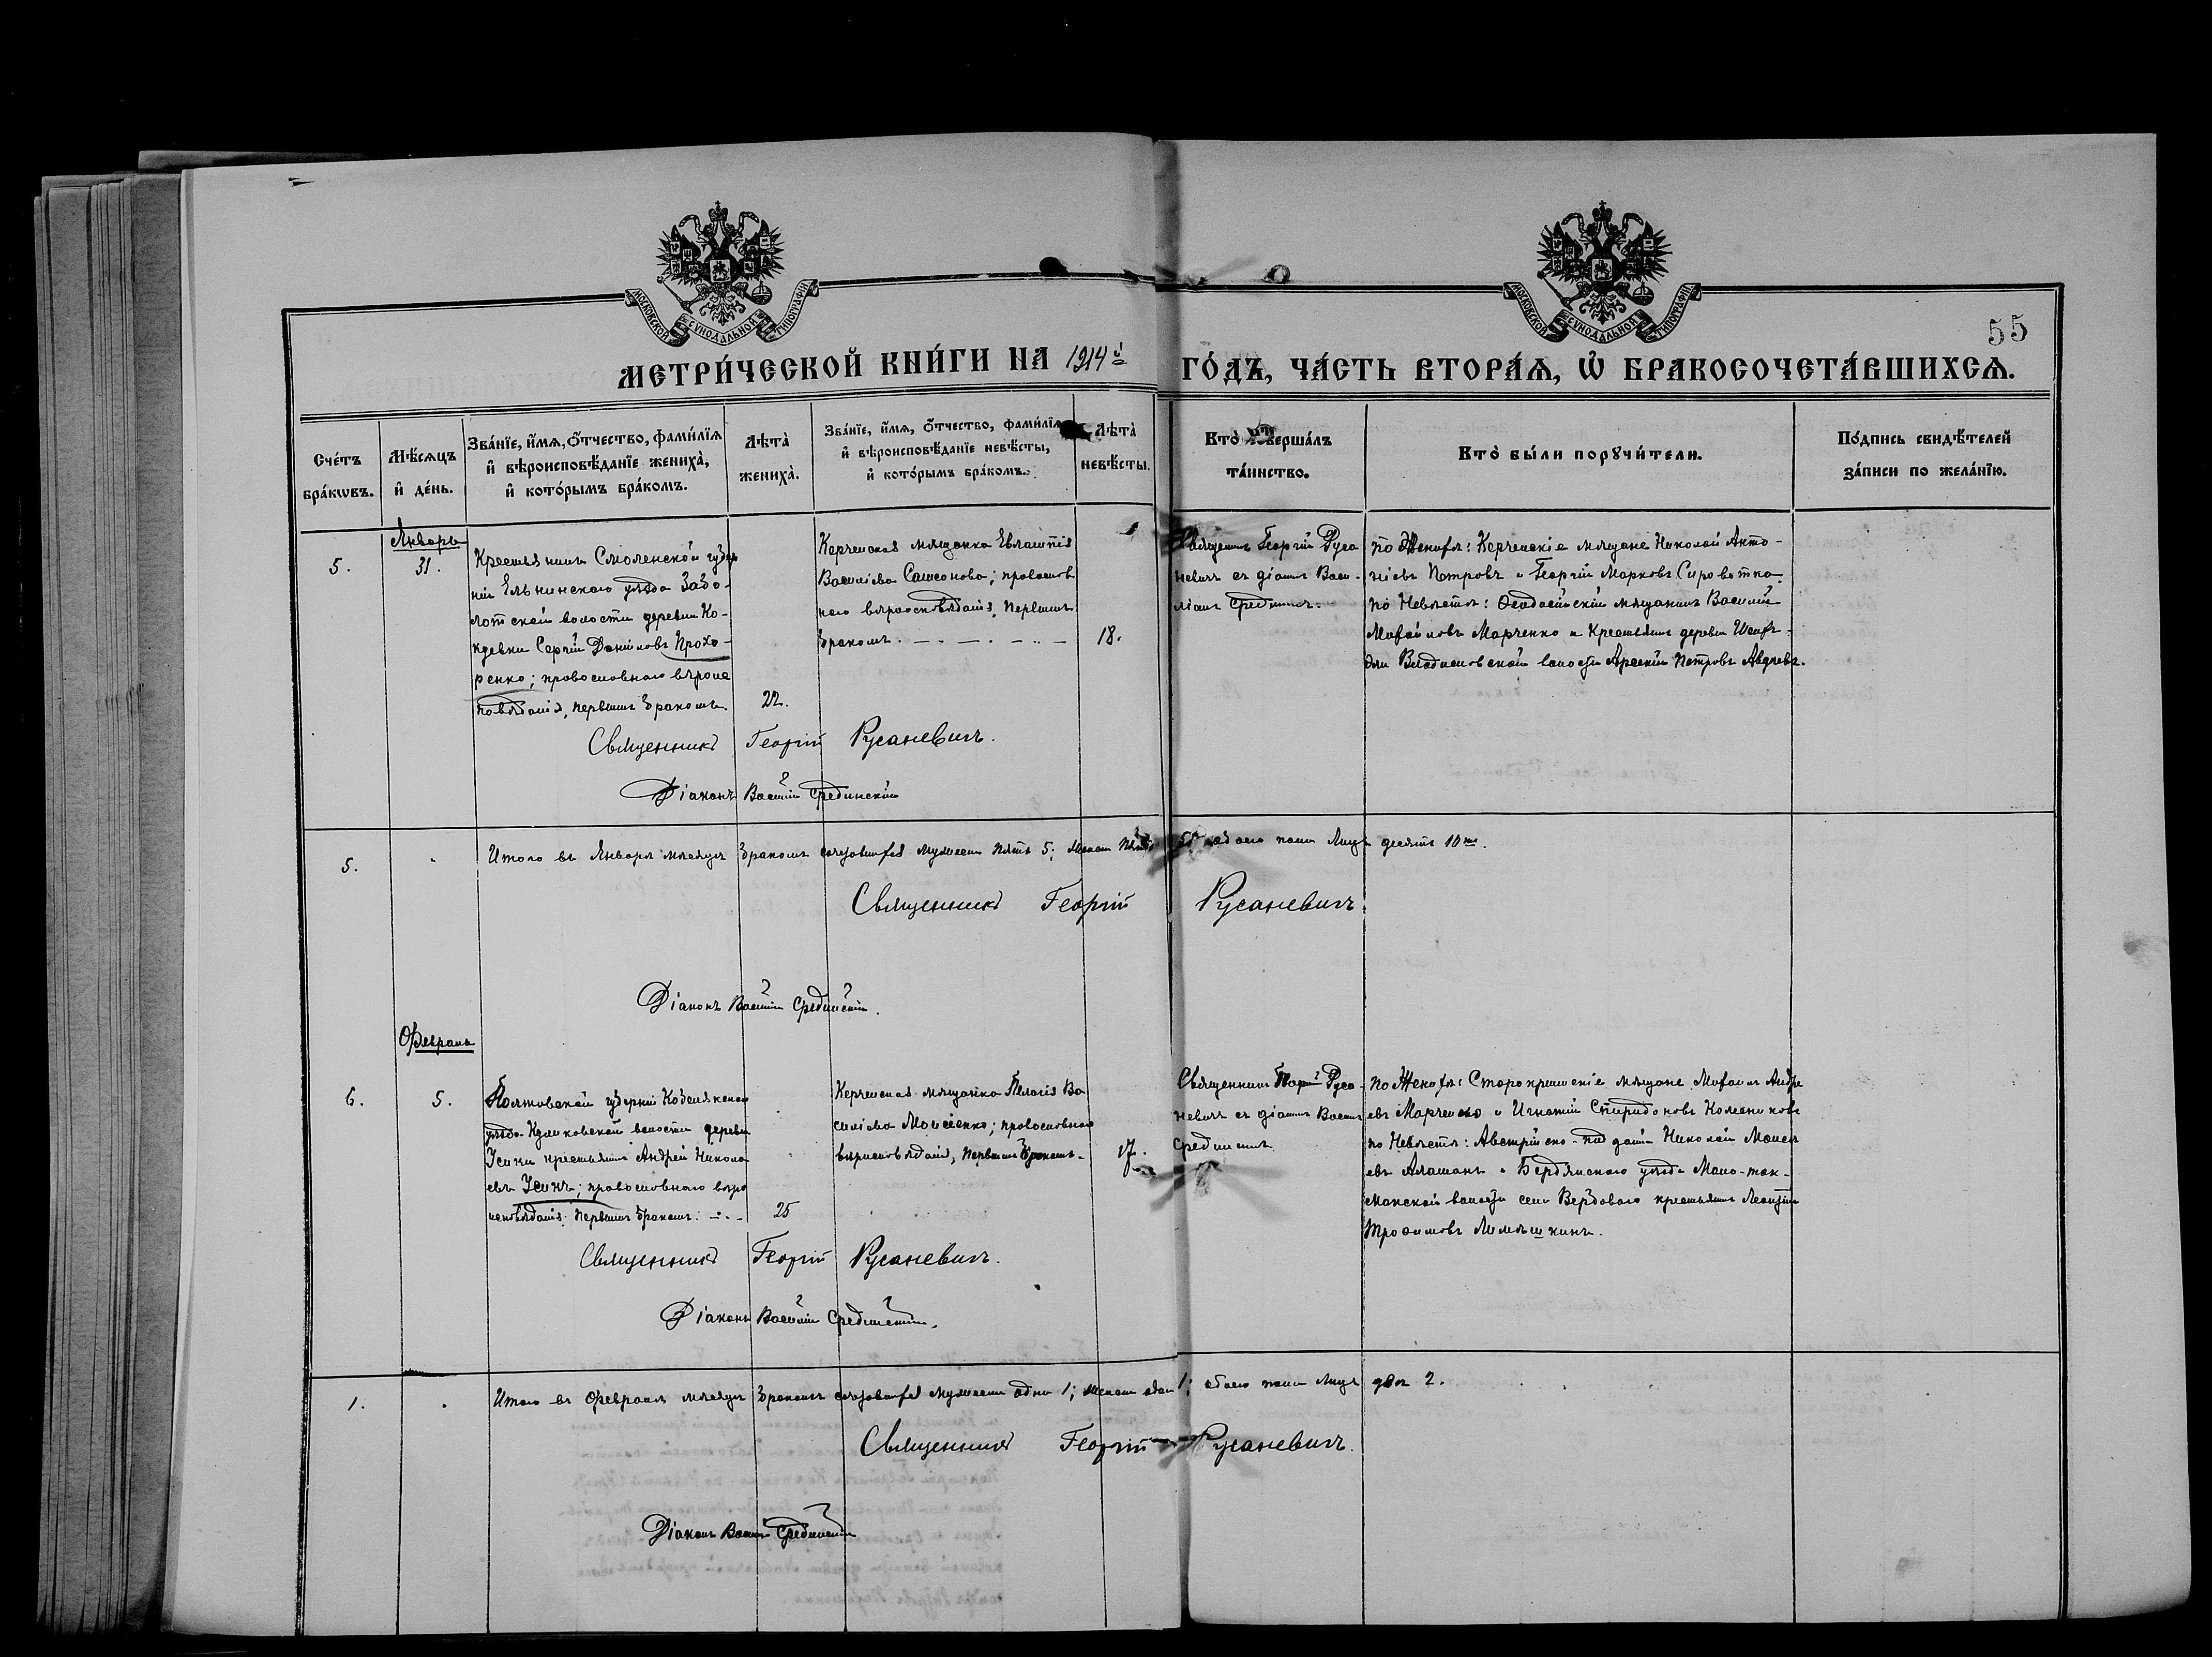 МОСКОВСКОЙ СУНОДАЛЬНОЙ ТИПОГРАФІИ
МОСКОВСКОЙ СУНОДАЛЬНОЙ ТИПОГРАФІИ
55
МЕТРИ́ЧЕСКОЙ КНИ́ГИ НА 1914й ГО́ДЪ, ЧА́СТЬ ВТОРА́Ѧ, Ѽ БРАКОСОЧЕТА́ВШИХСѦ.
Сче́тъ бра́кωвъ.
Мѣ́сѧцъ и҆ де́нь.
Зва́нїе, и҆́мѧ, ѻ҆́тчество, фами́лїѧ
и҆ вѣроисповѣ́данїе жениха̀,
и҆ кото́рымъ бра́комъ.
Лѣта̀ жениха̀.
Зва́нїе, и҆́мѧ, ѻ҆́тчество, фами́лїѧ
и҆ вѣроисповѣ́данїе невѣ́сты,
и҆ кото́рымъ бра́комъ.
Лѣта̀ невѣ́сты.
Кто̀ соверша́лъ
та́инство.
Кто̀ бы́ли порꙋчи́тели.
По́дпись свидѣ́телей
за́писи по жела́нїю.
5.
Январь
31.
Крестьянинъ Смоленской губер
ніи Ельнинскаго уѣзда Забо-
лотской волости деревни Ко-
Сергій Даніиловъ Прохо-
ренко; православнаго вѣроис
повѣданія, первымъ бракомъ.
22.
Керченская мѣщанка Евлампія
Васильева Самсонова; православ
наго вѣроисповѣданія, первымъ
бракомъ.
18.
Священникъ Георгій Руса
невичъ съ діакон. Васи-
ліемъ Срединскимъ.
По Женихѣ: Керченскіе мѣщане Николай Анто-
ніевъ Петровъ и Георгій Марковъ Сироватка.
По Невѣстѣ: Ѳеодосійскій мѣщанинъ Василій
Михайловъ Марченко и Крестьянинъ деревни
Владиславской волости Арсеній Петровъ Авдѣевъ.
Священникъ Георгій Русаневичъ.
Діаконъ Василій Срединскій
5.
Итого въ Январѣ мѣсяцѣ бракомъ сочетавшихся мужеска пять 5; женска пять 5; обоего пола лицъ десять 10ть.
Священникъ Георгій Русаневичъ.
Діаконъ Василій Срединскій.
Февраль
6.
5.
Полтавской губерніи Кобелякскаго
уѣзда Куликовской волости деревни
Усики крестьянинъ Андрей Никола
евъ Усикъ; православнаго вѣро
исповѣданія, первымъ бракомъ.
25
Керченская мѣщанка Пелагія Ва
сильева Моисеенко; православнаго
вѣроисповѣданія, первымъ бракомъ.
17.
Священникъ Георгій Руса-
невичъ съ діакон. Василіемъ
Срединскимъ.
По Женихѣ: Старокрымскіе мѣщане Михаилъ Андре
евъ Марченко и Игнатій Спиридоновъ Колесниковъ
по Невѣстѣ: Австрійско-подданый Николай Моисе
евъ Аламанъ и Бердянскаго уѣзда Мало-ток-
макской волости села Вербоваго крестьянинъ Леонтій
Трофимовъ Лемешкинъ.
Священникъ Георгій Русаневичъ.
Діаконъ Василій Срединскій.
1.
Итого въ Февралѣ мѣсяцѣ бракомъ сочетавшихся мужеска одинъ 1; женска одна 1; обоего пола лицъ два 2.
Священникъ Георгій Русаневичъ.
Діаконъ Василій Срединскій